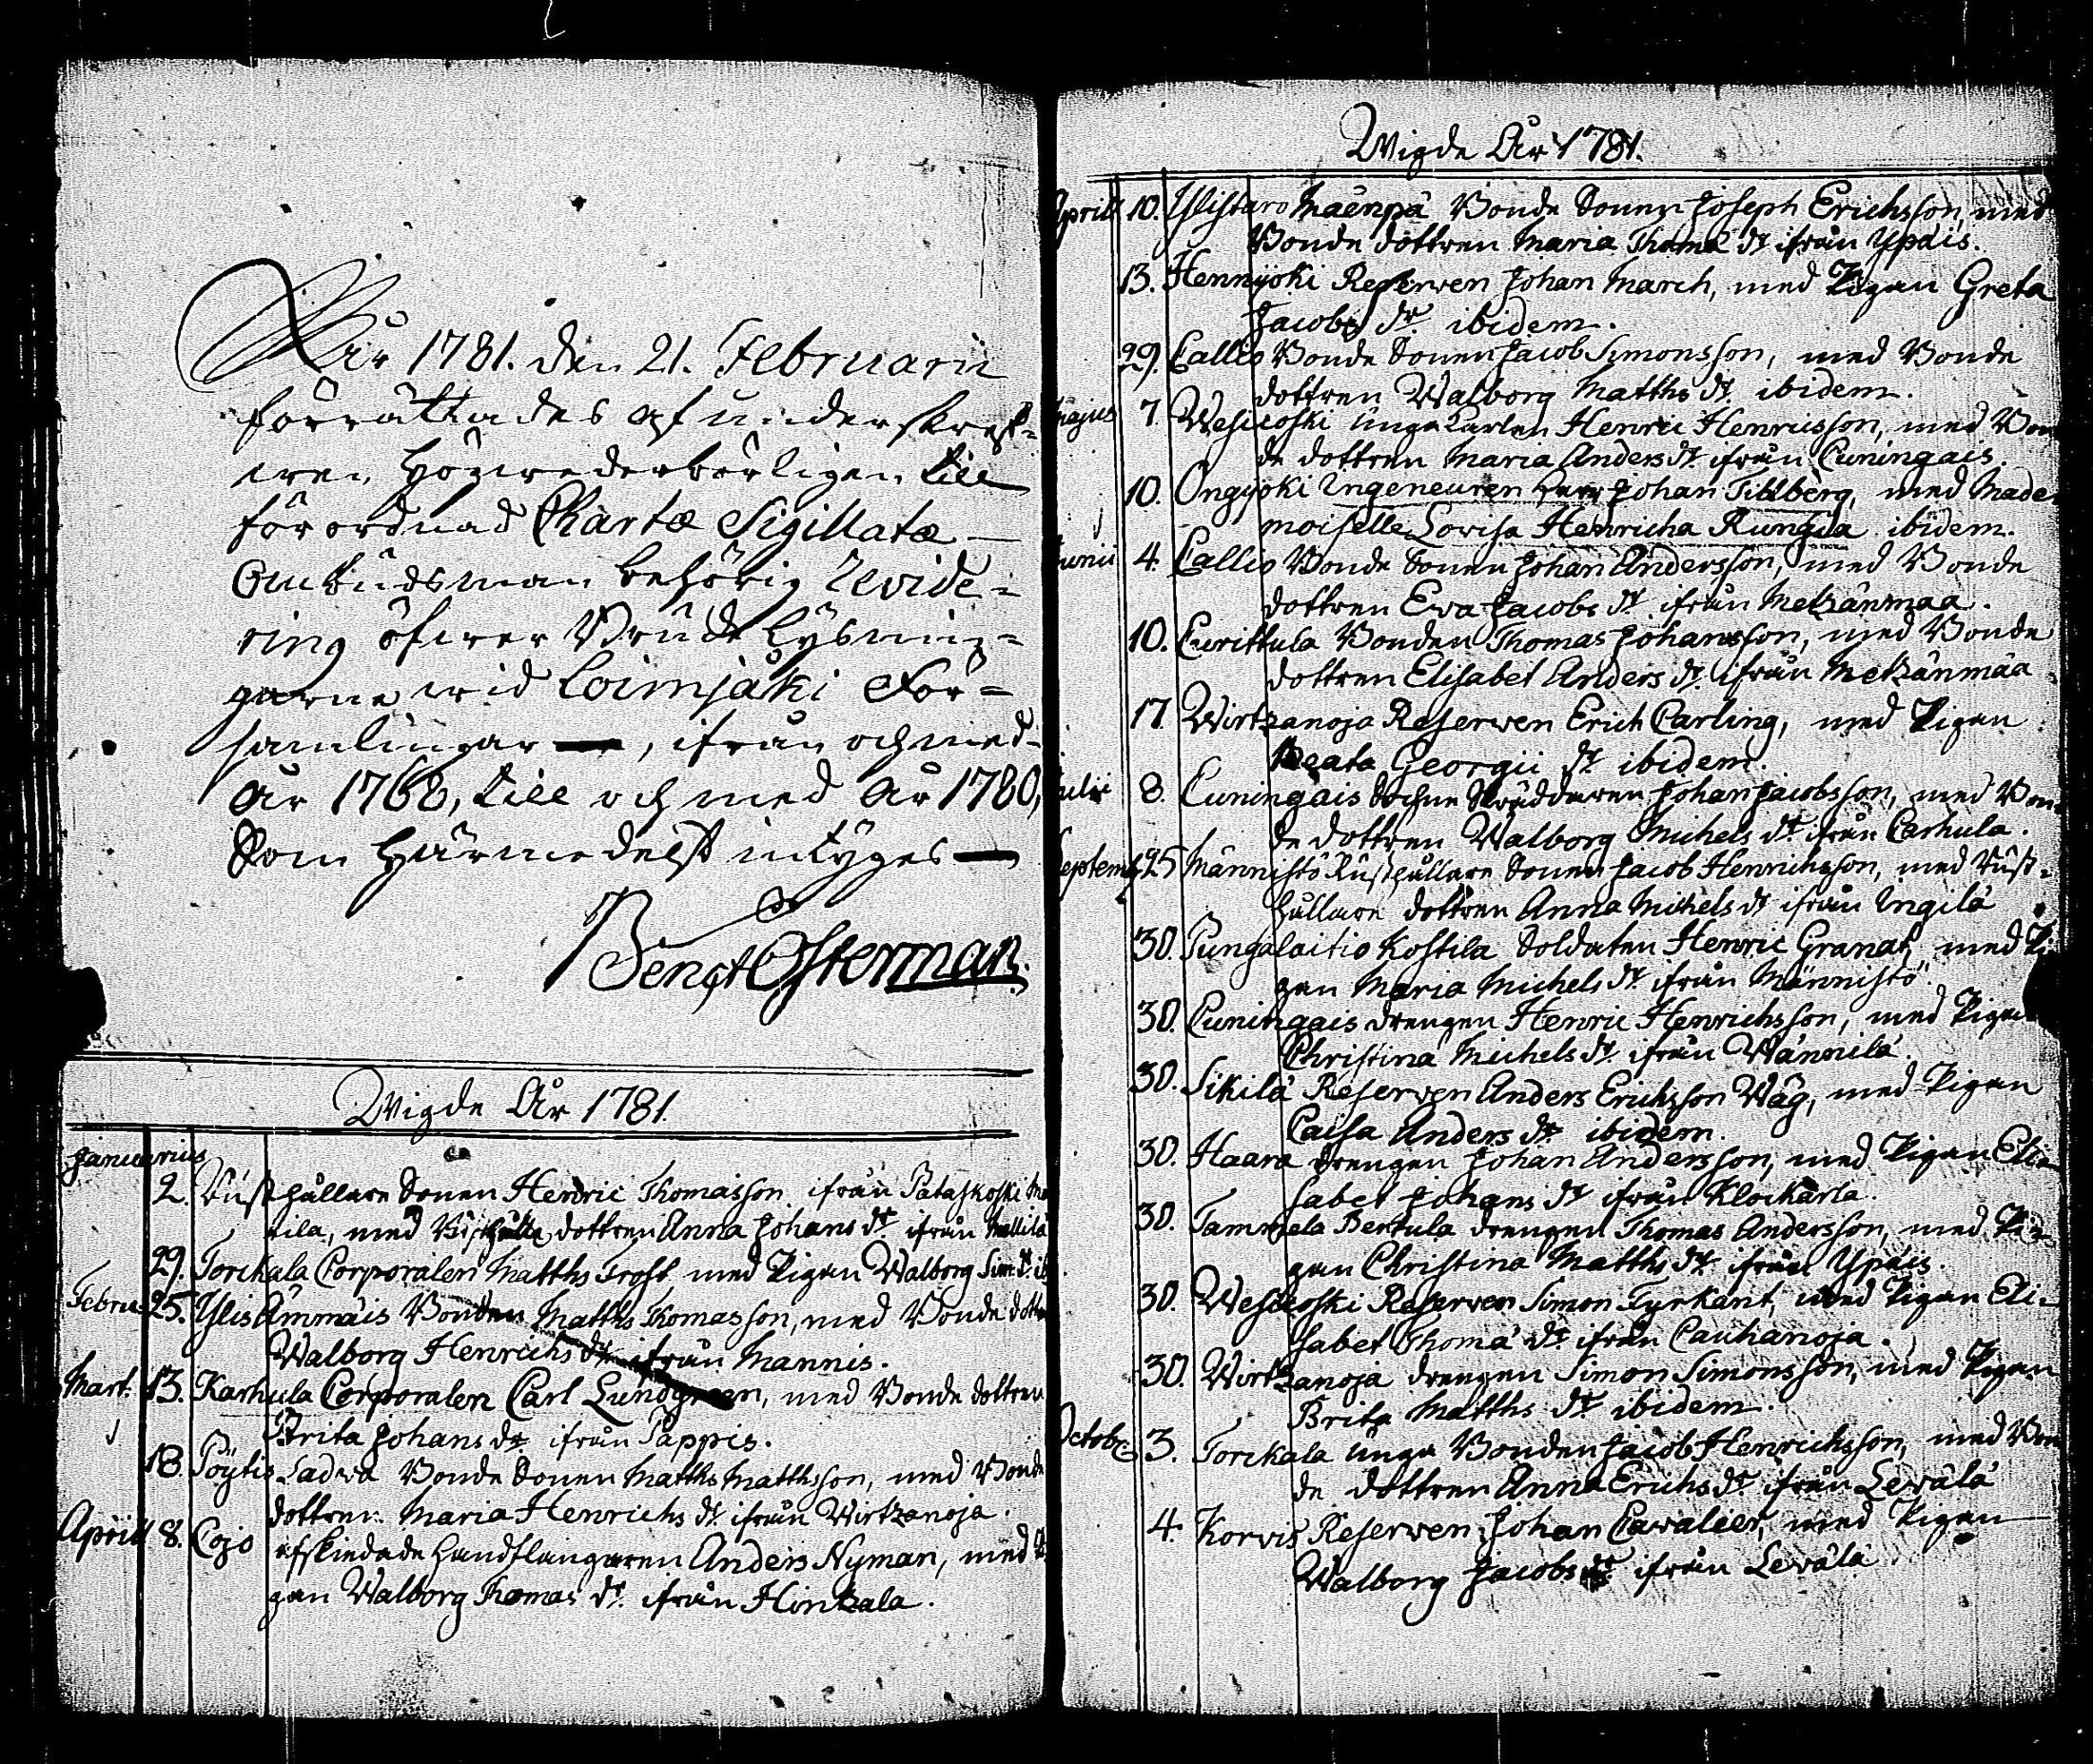 År 1781. den 21. Februarii
förrättades af underskref-
wen högwederbörligen till
förordnad Chartæ Sigillatæ
Ombudsman behörig Revide-
ring öfwer Brude Lysnin-
garne wid Loimjåki För-
samlingar, ifrån och med
År 1768, till och med År 1780,
Som härmedelst intyges
Bengt Österman.
Wigde År 1781.
Januarius
2. Rusthållare Sonen Henric Thomasson ifrån Pataskoski
tila, med dottren Anna Johans dr ifrån Mellilä
29. Torckala Corporalen Matths Frost med Pigan Walborg Sim. dr
Febru. 25. Ylis Ämmäis Bonden Matths Thomasson, med Bonde
Walborg Henrichs dr ifrån Mannis.
Mart. 13. Karhula Corporalen Carl Lundgreen, med Bonde dottren
Brita Johans dr ifrån Pappis.
18. Pöytis Ladwa Bonde Sonen Matths Matthsson, med Bonde
dottren Maria Henrichs dr ifrån Wirtzanoja.
Aprill 8. Cojo afskiedade handtlangaren Anders Nyman, med
gan Walborg Thomas dr ifrån Hinkala.
Wigde År 1781.
Aprill 10. Ylistaro Mäenpä Bonde Sonen Joseph Erichsson, med
Bonde dottren Maria Thomæ dr ifrån Ypäis.
13. Hennijoki Reserven Johan March, med Pigan Greta
Jacobs dr ibidem.
29. Callio Bonde Sonen Jacob Simonsson, med Bonde
dottren Walborg Matths dr ibidem.
Majus 7. Wesicoski unga Karlen Henric Henricsson, med Bon
de dottren Maria Anders dr ifrån Cuningais.
10. Ongijoki Ingeneuren Herr Johan Tillberg, med Made-
moiselle Lovisa Henricha Rungea ibidem.
Junii 4. Callio Bonde Sonen Johan Andersson, med Bonde
dottren Eva Jacobs dr ifrån Metzänmaa.
10. Curittula Bonden Thomas Johansson, med Bonde
dottren Elisabet Anders dr ifrån Metzänmäa
17. Wirtzanoja Reserven Erich Carling, med Pigan
Beata Georgii dr ibidem.
Julii 8. Cuningais Sochne Skräddaren Johan Jacobsson, med Bon-
de dottren Walborg Michels dr ifrån Carhula.
Septemb. 25. Männistö Rusthållare Sonen Jacob Henrichsson, med Rust-
hållare dottren Anna Michels dr ifrån Ingilä
30. Pungalaitio Kostila Soldaten Henric Granat, med Pi
gan Maria Michels dr ifrån Männistö.
30. Cuningais drengen Henric Henrichsson, med Pigan
Christina Michels dr ifrån Wännilä.
30. Sikilä Reserven Anders Erichsson Wåg, med Pigan
Caisa Anders dr ibidem.
30. Haara drengen Johan Andersson, med Pigan Eli-
sabet Johans dr ifrån Klockarla.
30. Tammela Bertula drengen Thomas Andersson, med Pi-
gan Christina Matths dr ifrån Ypäis.
30. Wesicoski Reserven Simon Tyrkant, med Pigan Eli-
sabet Thomæ dr ifrån Cauhanoja.
30. Wirtzanoja drengen Simon Simonsson, med Pigan
Brita Matths dr ibidem.
Octobr. 3. Torckala unga Bonden Jacob Henrichsson, med Bon
de dottren Anna Erichs dr ifrån Levälä
4. Korvis Reserven Johan Cavaleer, med Pigan
Walborg Jacobs dr ifrån Levälä